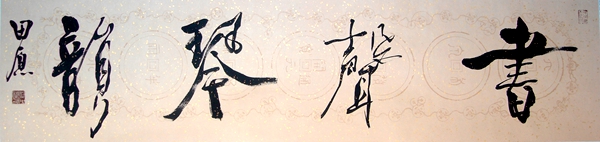 書聲琴韻
田原